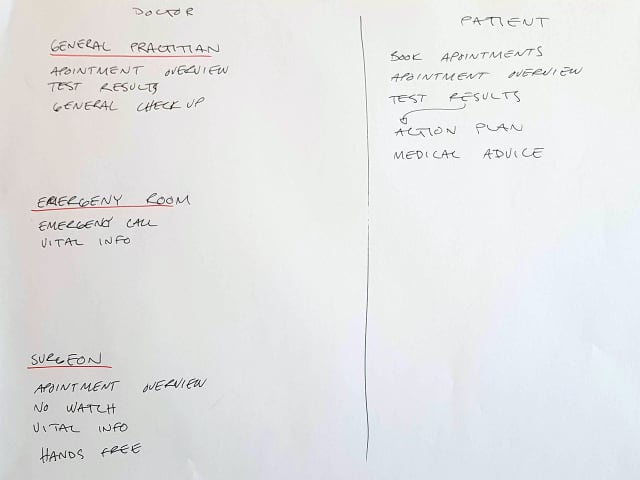 DOCTOR
GENERAL PRACTITIAN
APOINTMENT OVERVIEW
TEST RESULTS
GENERAL CHECK UP
EMERGENY ROOM
EMERGENCY CALL
VITAL INFO
SURGEON
APOINTMENT OVERVIEW
NO WATCH
VITAL INFO
HANDS FREE
PATIENT
BOOK APOINTMENTS
APOINTMENT OVERVIEW
TEST RESULTS
ACTION PLAN
MEDICAL ADVICE